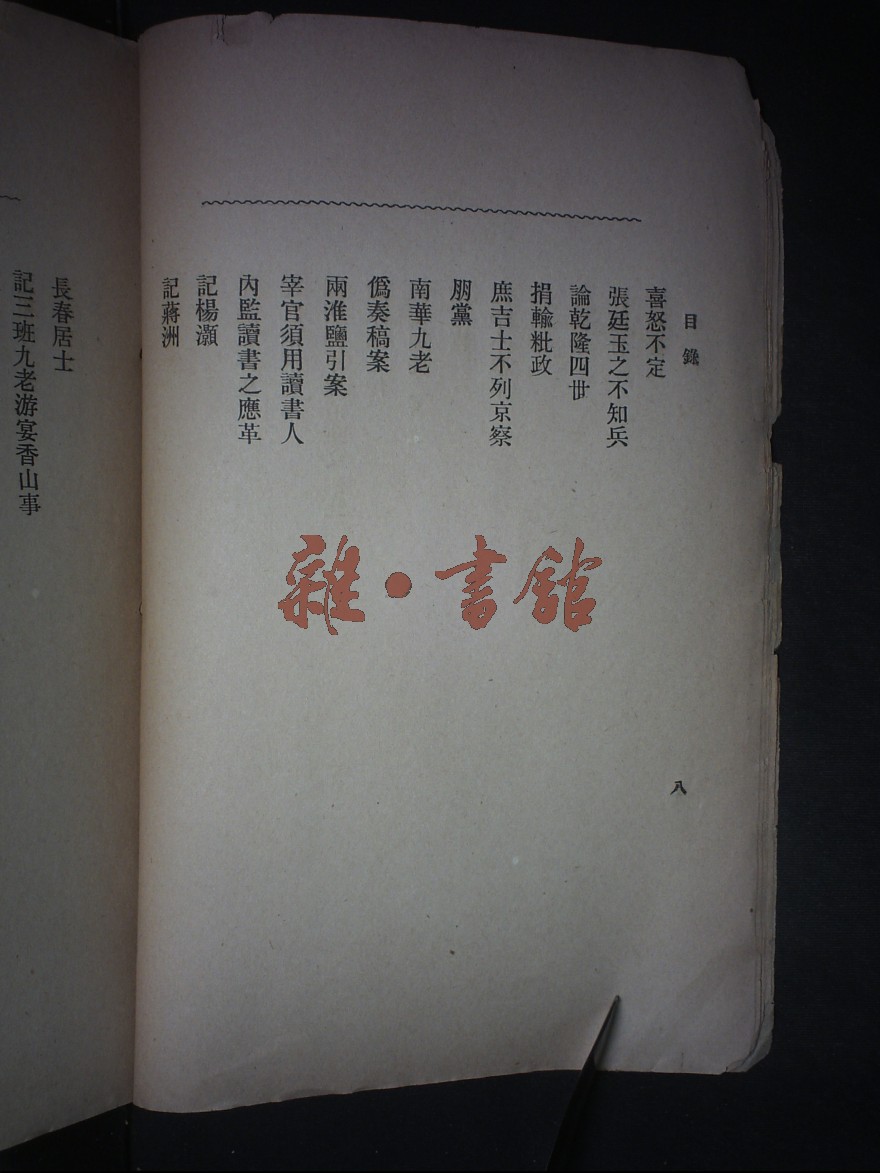 目錄
喜怒不定
張廷玉之不知兵
論乾隆四世
捐輸粃政
庶吉士不列京察
朋黨
南華九老
僞奏稿案
兩淮鹽引案
宰官須用讀書人
內監讀書之應革
記楊灝
記蔣洲
八
長春居士
記三班九老游宴香山事
雜·書館